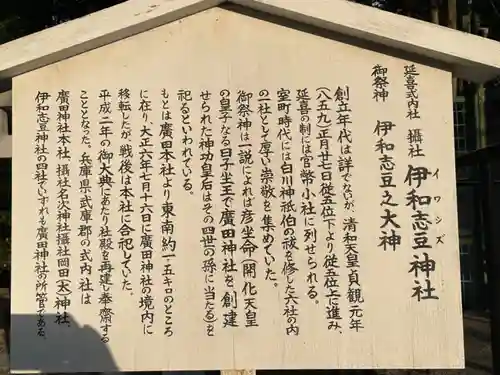 延喜式内社 摂社 伊和志豆神社
イワシズ
御祭神 伊和志豆之大神
創立年代は詳でないが、清和天皇貞観元年
(八五九)正月廿七日従五位下より従五位上に進み、
延喜の制には官幣小社に列せられる。
室町時代には白川神祇伯の祓を修した六社の内
の一社として厚い崇敬を集めていた。
御祭神は一説によれば彦坐命(開化天皇
の皇子なる日子坐王で廣田神社を創建
せられた神功皇后はその四世の孫に当たる)を
祀るといわれている。
もとは廣田本社より東南約一・五キロのところ
に在り、大正六年七月十六日に廣田神社の境内に
移転したが、戦後は本社に合祀していた。
平成二年の御大典にあたり社殿を再建し奉斎する
こととなった。兵庫県武庫郡の式内社は
廣田神社本社、摂社名次神社摂社岡田(太)神社、
伊和志豆神社の四社でいずれも廣田神社の所管である。